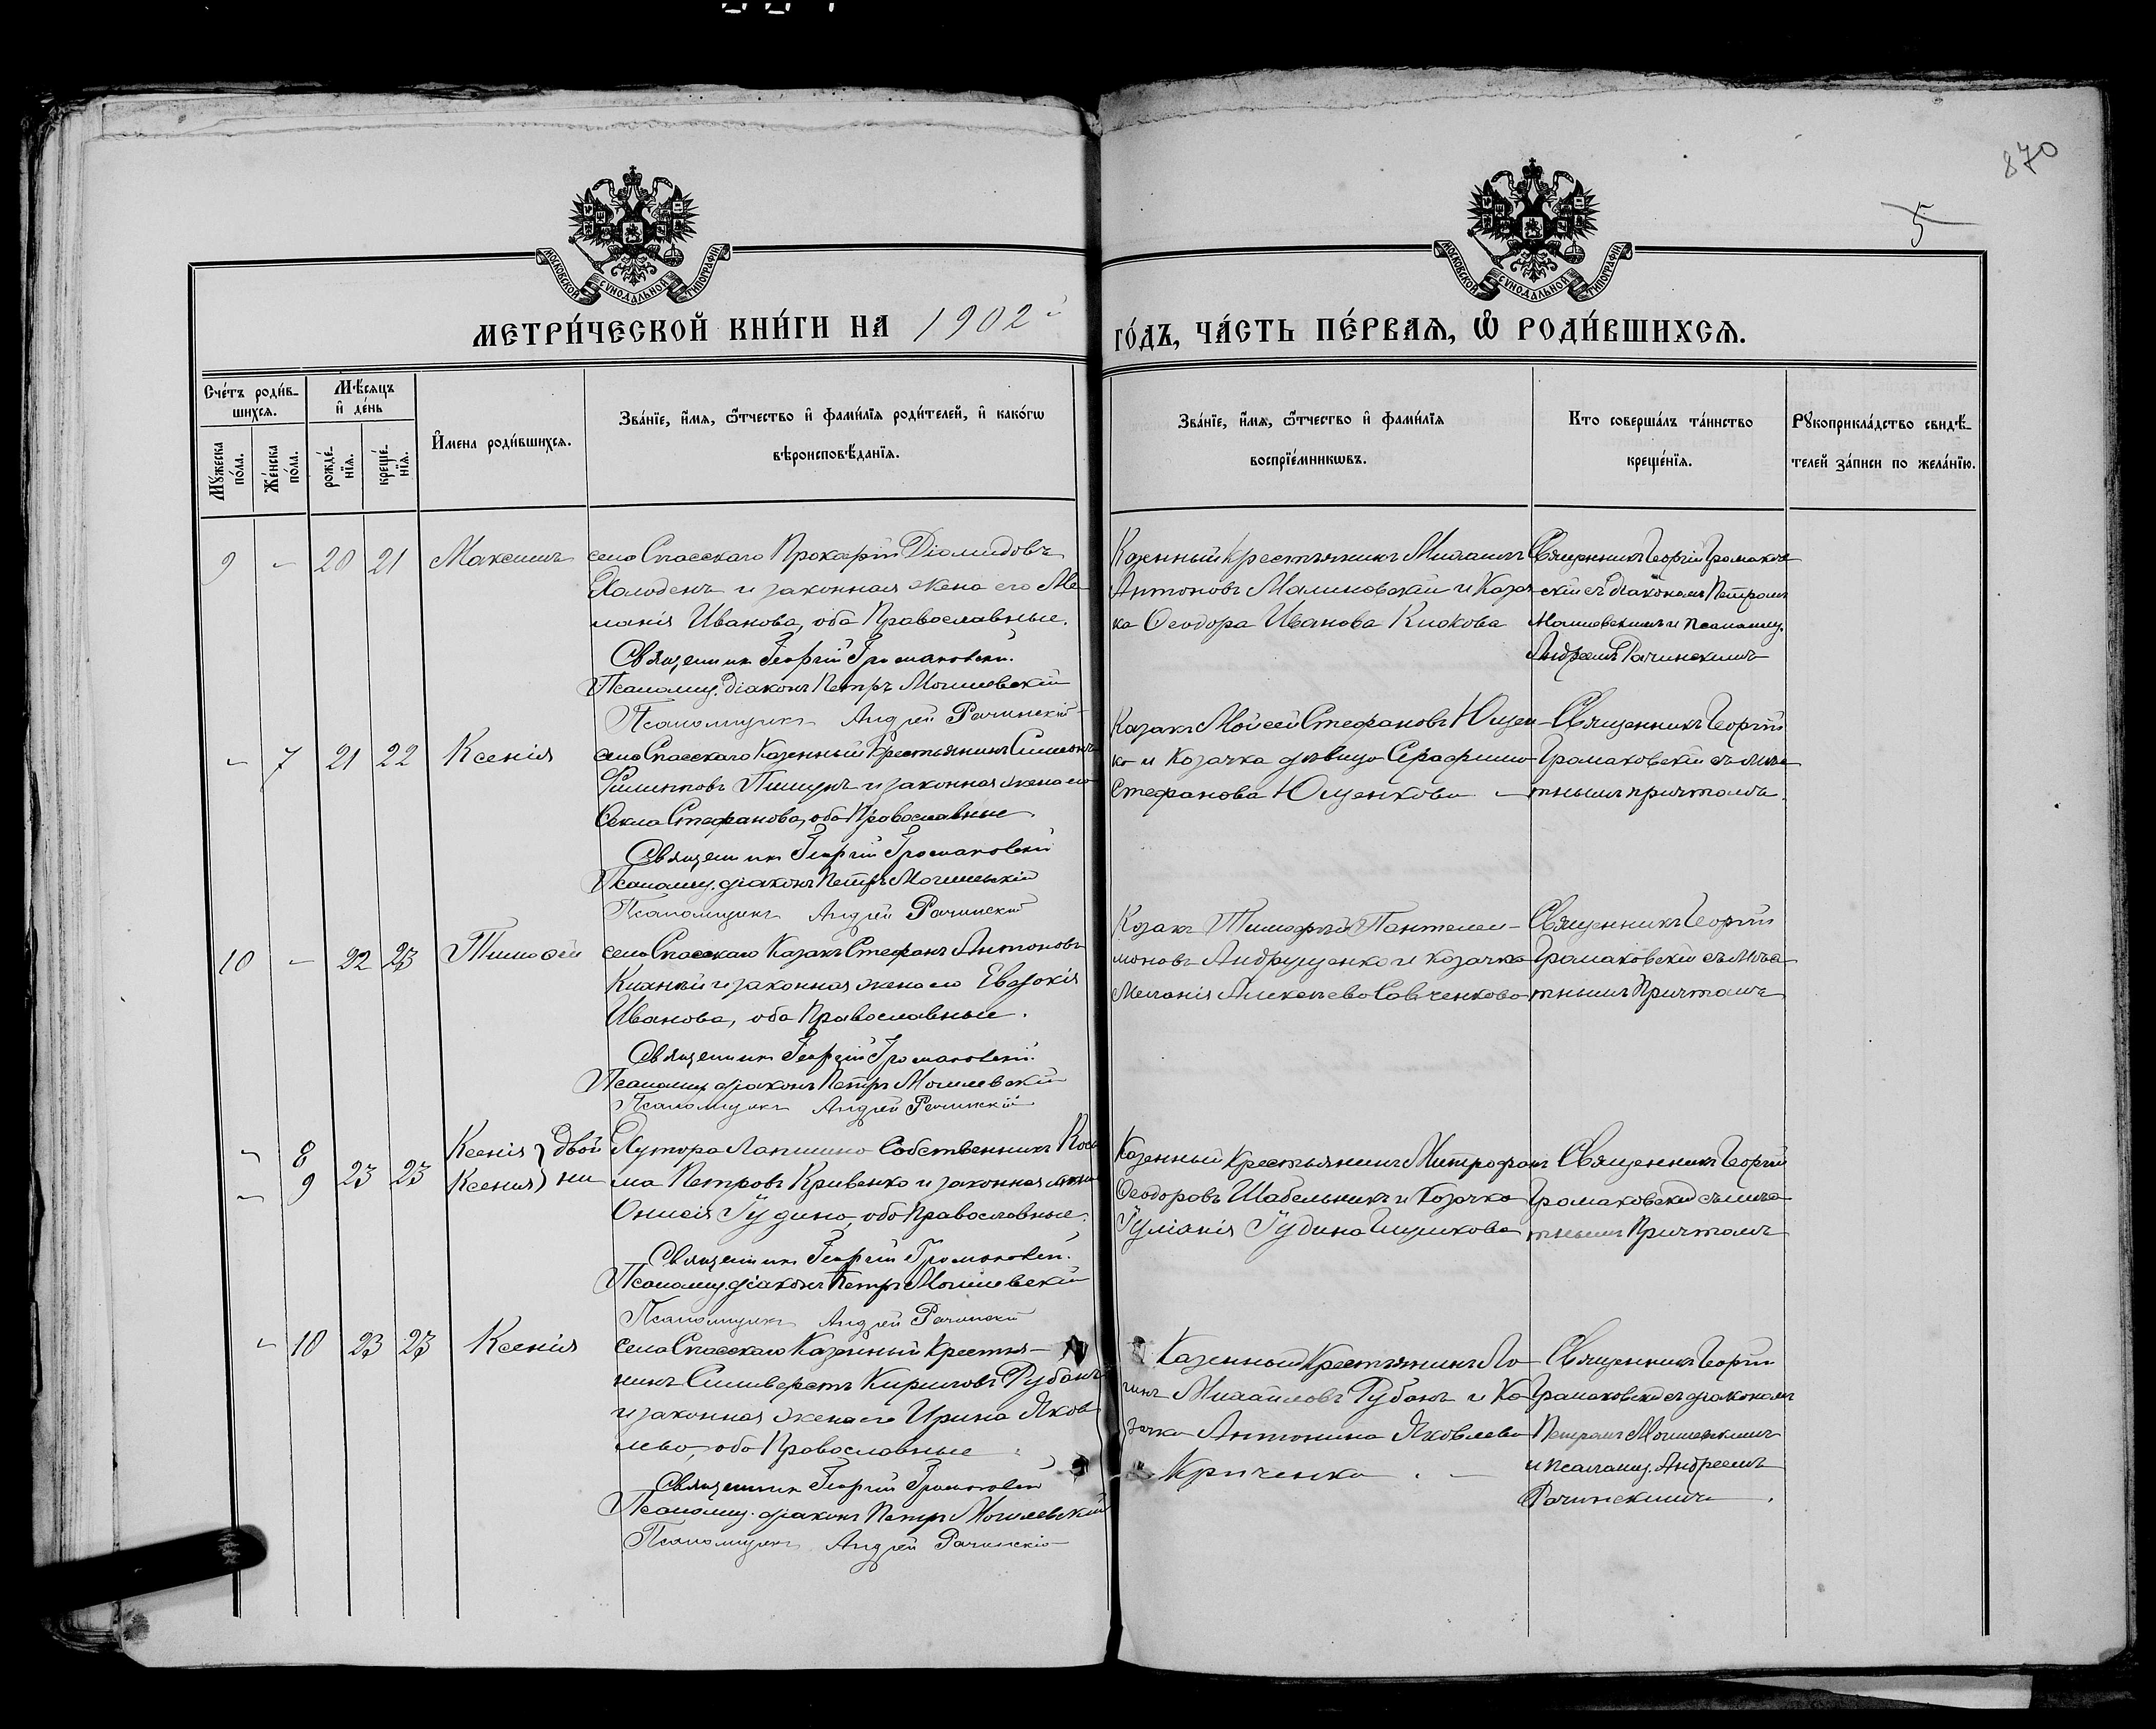 870
5
МОСКОВСКОЙ СУНОДАЛЬНОЙ ТИПОГРАФІИ
МОСКОВСКОЙ СУНОДАЛЬНОЙ ТИПОГРАФІИ
МЕТРИ́ЧЕСКОЙ КНИ́ГИ НА 1902й
ГО́ДЪ, ЧА́СТЬ ПЕ́РВАѦ, Ѡ҆ РОДИ́ВШИХСѦ.
Сче́тъ роди́в-
шихсѧ.
Мѣ́сѧцъ
и҆ де́нь
Мꙋ́жеска
по́ла.
Же́нска
по́ла.
рожде́-
нїѧ.
креще́-
нїѧ.
И҆мена роди́вшихсѧ.
Зва́нїе, и҆́мѧ, ѻ҆́тчество и҆ фами́лїѧ роди́телей, и҆ како́гѡ
вѣроисповѣ́данїѧ.
Зва́нїе, и҆́мѧ, ѻ҆́тчество и҆ фами́лїѧ
воспрїе́мникѡвъ.
Кто соверша́лъ та́инство
креще́нїѧ.
Рꙋкоприкла́дство свидѣ́-
телей за́писи по жела́нїю.
9 - 20 21 Максимъ
села Спасскаго Прокофій Діомидовъ
Холоденъ и законная жена его Ме-
ланія Иванова, оба Православные.
Священникъ Георгій Громаковскій.
Псаломщ. діаконъ Петръ Могилевскій
Псаломщикъ Андрей Рачинскій
Казенный крестьянинъ Михаилъ
Антоновъ Малиновскій и Козач-
ка Ѳеодора Иванова Кискова
Священникъ Георгій Громаков-
скій съ діакономъ Петромъ
Могилевскимъ и псаломщ.
Андреемъ Рачинскимъ
- 7 21 22 Ксенія
села Спасскаго Казенный Крестьянинъ Симеонъ
Филипповъ Пищунъ и законная жена его
Ѳекла Стефанова, оба Православные
Священникъ Георгій Громаковскій
Псаломщ. діаконъ Петръ Могилевскій
Псаломщикъ Андрей Рачинскій
Казакъ Мойсей Стефановъ Ющен-
ко и Козачка дѣвица Серафима
Стефанова Ющенкова
Священникъ Георгій
Громаковскій съ мѣс-
тнымъ причтомъ.
10 - 22 23 Тимоѳей
села Спасскаго Казакъ Стефанъ Антоновъ
и законная жена его Евдокія
Иванова, оба Православные.
Священникъ Георгій Громаковскій.
Псаломщ. діаконъ Петръ Могилевскій
Псаломщикъ Андрей Рачинскій
Козакъ Тимофей Пантелей-
моновъ Андрущенко и козачка
Меланія Алексѣева Савченкова
Священникъ Георгій
Громаковскій съ мѣс-
тнымъ Причтомъ
- 8 Ксенія } двой
- 9 23 23 Ксенія } ни
Хутора Лапшино Собственникъ Кось-
ма Петровъ Кривенко и законная жена
Онисія Гудина, оба Православные.
Священникъ Георгій Громаковскій.
Псаломщ. діаконъ Петръ Могилевскій
Псаломщикъ Андрей Рачинскій
Казенный Крестьянинъ Митрофанъ
Ѳеодоровъ Шабельникъ и Козачка
Гудина
Священникъ Георгій
Громаковскій съ мѣс-
тнымъ Причтомъ
- 10 23 23 Ксенія
села Спасскаго Казенный Крестья-
нинъ Сильверстъ Кириловъ Рубанъ
и законная жена его Ирина Яков-
лева, оба Православные
Священникъ Георгій Громаковскій
Псаломщ. діаконъ Петръ Могилевскій
Псаломщикъ Андрей Рачинскій
Казенный Крестьянинъ Ло-
гинъ Михайловъ Рубанъ и Ко-
зачка Антонина Яковлева
Криченко
Священникъ Георгій
Громаковскій съ діакономъ
Петромъ Могилевскимъ
и псаломщ. Андреемъ
Рачинскимъ.